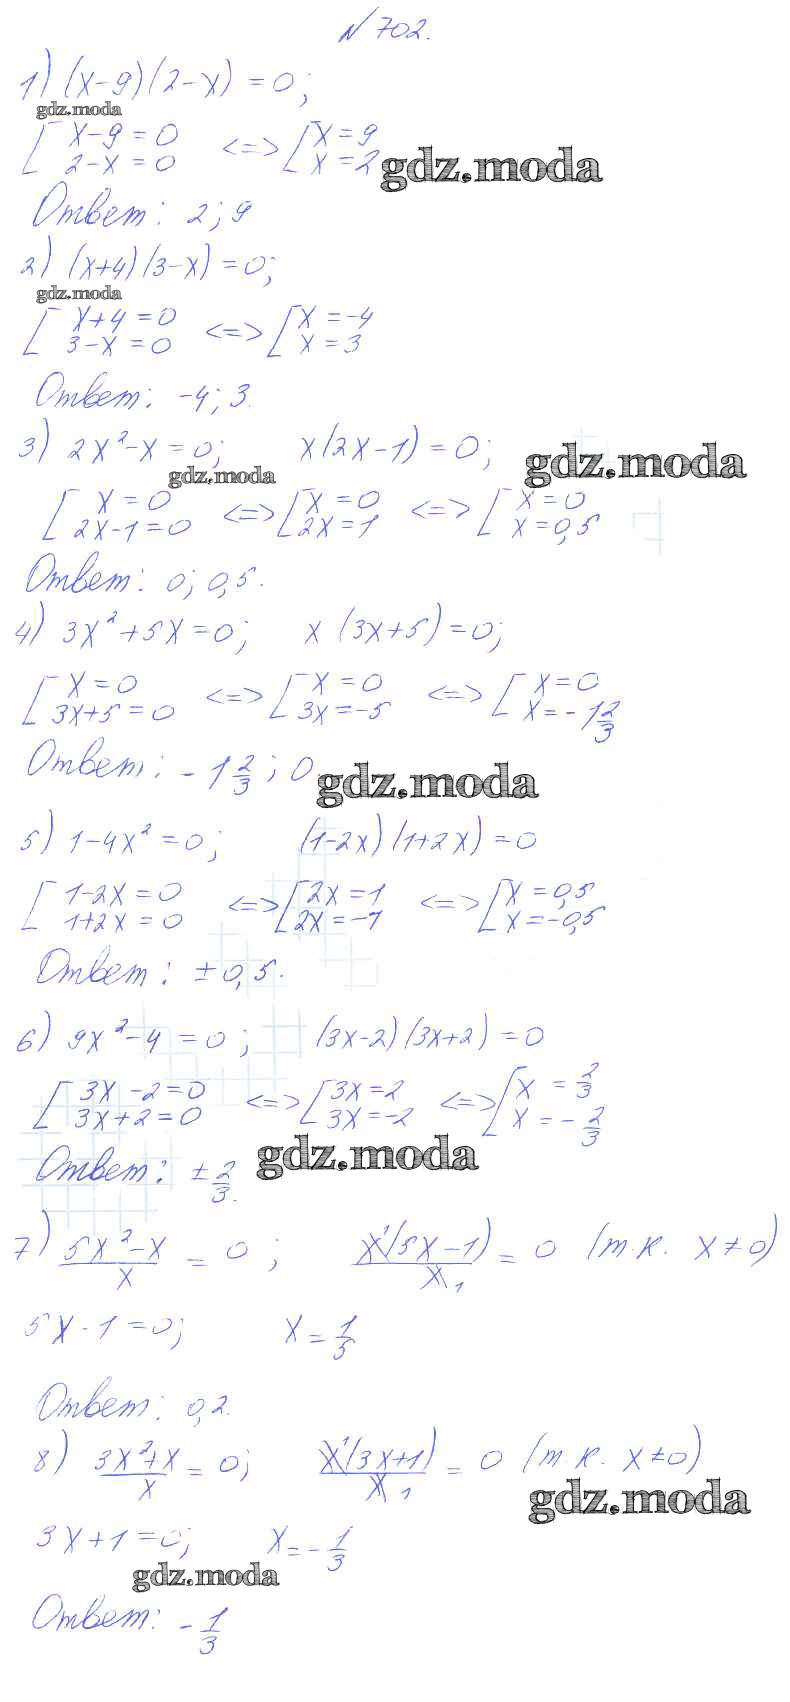 №702.
1) (x-9)(2-x)=0;
gdz.moda
[ x-9=0 <=> [ x=9
2-x=0 x=2
gdz.moda
Ответ: 2; 9
2) (x+4)(3-x)=0;
gdz.moda
[ x+4=0 <=> [ x=-4
3-x=0 x=3
Ответ: -4; 3.
3) 2x²-x=0; x(2x-1)=0;
gdz.moda
gdz.moda
[ x=0 <=> [ x=0 <=> [ x=0
2x-1=0 2x=1 x=0,5
Ответ: 0; 0,5.
4) 3x²+5x=0; x(3x+5)=0;
[ x=0 <=> [ x=0 <=> [ x=0
3x+5=0 3x=-5 x=-1 2/3
Ответ: -1 2/3; 0.
gdz.moda
5) 1-4x²=0; (1-2x)(1+2x)=0
[ 1-2x=0 <=> [ 2x=1 <=> [ x=0,5
1+2x=0 2x=-1 x=-0,5
Ответ: ±0,5.
6) 9x²-4=0; (3x-2)(3x+2)=0
[ 3x-2=0 <=> [ 3x=2 <=> [ x=2/3
3x+2=0 3x=-2 x=-2/3
Ответ: ±2/3.
gdz.moda
7) (5x²-x)/x=0; x¹(5x-1)/x₁=0 (т.к. x≠0)
5x-1=0; x=1/5
Ответ: 0,2.
8) (3x²+x)/x=0; x¹(3x+1)/x₁=0 (т.к. x≠0)
gdz.moda
3x+1=0; x=-1/3
gdz.moda
Ответ: -1/3